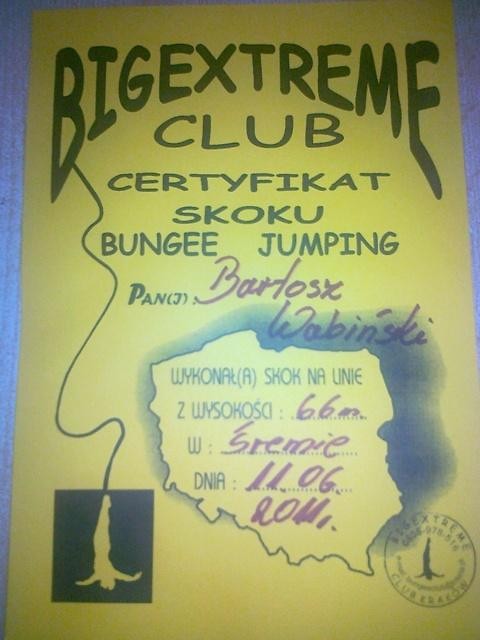 BIGEXTREME
CLUB
CERTYFIKAT
SKOKU
BUNGEE JUMPING
PAN(I): Bartosz
Wabiński
WYKONAŁ(A) SKOK NA LINIE
Z WYSOKOŚCI : 66m
W : Śremie
DNIA : 11.06.
2011r.
BIGEXTREME
CLUB KRAKÓW